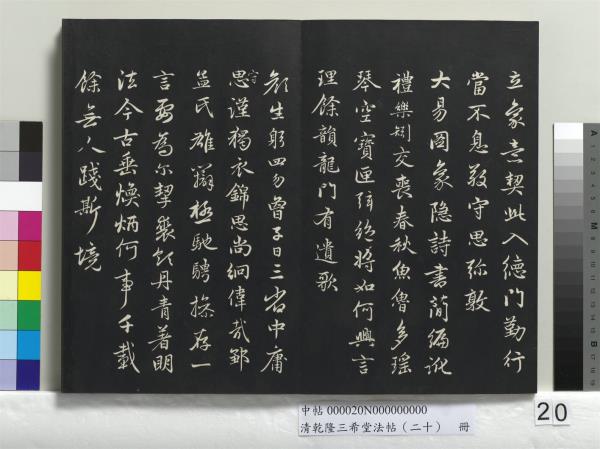 立象意契此入德門勤行
當不息敬守思弥敦
大易圖象隱詩書簡編訛
禮樂矧交喪春秋魚魯多瑤
琴空寶匣絃絕將如何興言
理餘韻龍門有遺歌
顏生躬四勿曾子日三省中庸
思謹獨衣錦思尚絅偉哉鄒
孟氏雄辯極馳騁操存一
言要為尔挈裘領丹青著明
法今古垂煥炳何事千載
餘無人踐斯境
中帖 000020N000000000
清乾隆三希堂法帖（二十） 冊
20